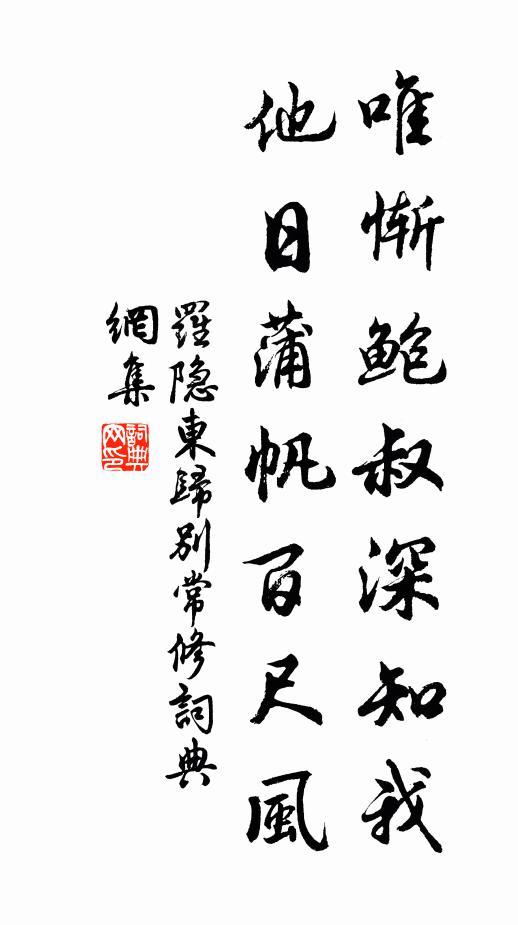 唯慚鲍叔深知我
他日蒲帆百尺風
羅隐東歸别常修詞典
網集
詞典
网印